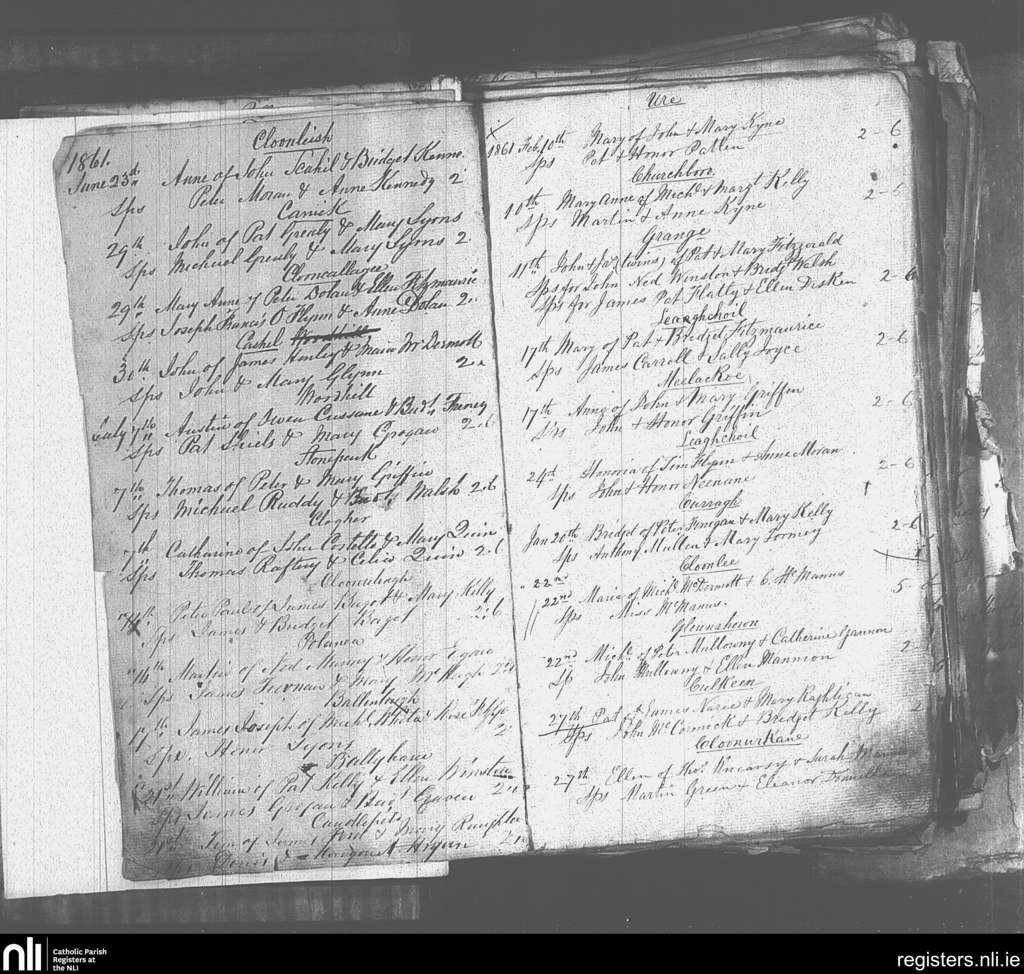 Cloonleish
1861.
June 23rd Anne of John Scahil & Bridget Kenne
Sps Peter Moran & Anne Kennedy 2
Carrick
29th John of Pat Grealy & Mary Lyons
Sps Michael Grealy & Mary Lyons 2.
Clooncallagee
29th Mary Anne of Peter Dolan & Ellen Fitzmaurice
Sps Joseph Francis O'Flynn & Anne Dolan 2.
Cashel
30th John of James Hanley & Maria McDermott
Sps John & Mary Glynn 2.
Woodhill
July 7th Austin of Owen Cussane & Bridt. Feeney
Sps Pat Shiels & Mary Grogan 2.6
Stonepark
7th Thomas of Peter & Mary Griffin
Sps Michael Ruddy & Walsh 2.6
Clogher
7th Catharine of John Costello & Mary Quin
Sps Thomas Raftery & Celia Quin 2.6
14th Peter Paul of James Bagot & Mary Kelly
Sps James & Bridget Bagot 2.6
14th Martin of Ned & Honor Egan
Sps James & Mary McHugh
Ballintogh
17th James Joseph of Michl. Rose
Sps. Honor Lyons 2.
21st William of Pat Kelly & Ellen Winston
Sps James Grogan &
Candlefield
21st Tim of James &
& Margaret Hyan
Ure
1861 Feb. 10th Mary of John & Mary Kyne
Sps Pat & Honor Patten 2-6
Churchboro
10th Mary Anne of Michl. & Margt Kelly
Sps Martin & Anne Kyne 2-6
Grange
11th John & Jas (twins) of Pat & Mary Fitzgerald
Sps for John Ned Winston & Bridgt Walsh
Sps for James Pat Flatly & Ellen Disken 2-6
Leaghchoil
17th Mary of Pat & Bridget Fitzmaurice
Sps James Carroll & Sally Joyce 2-6
MeelacRoe
17th Anne of John & Mary Griffin
Sps John & Honor Griffin 2-6
Leaghchoil
24th Honoria of Tim Flynn & Anne Moran
Sps John & Honor Neenane 2-6
Curragh
Jan 20th Bridget of Peter Finegan & Mary Kelly
Sps Anthony Mullen & Mary Tormey 2-6
Cloonlee
22nd
22nd Maria of Michl. McDermott & C. McManus
Sps Miss McManus. 5
22nd Michl. of Peter Mullowny & Catherine Gannon
Sp John Mulleany & Ellen Mannion 2
Culkeen
27th Pat of James Narie & Mary Raghtigan
Sps John McCormick & Bridget Kelly 2
CloonurKane
27th Ellen of Thos. Kneavsy & Sarah
Sps Martin Green & Eleanor
nli
Catholic Parish
Registers at
the NLI
registers.nli.ie